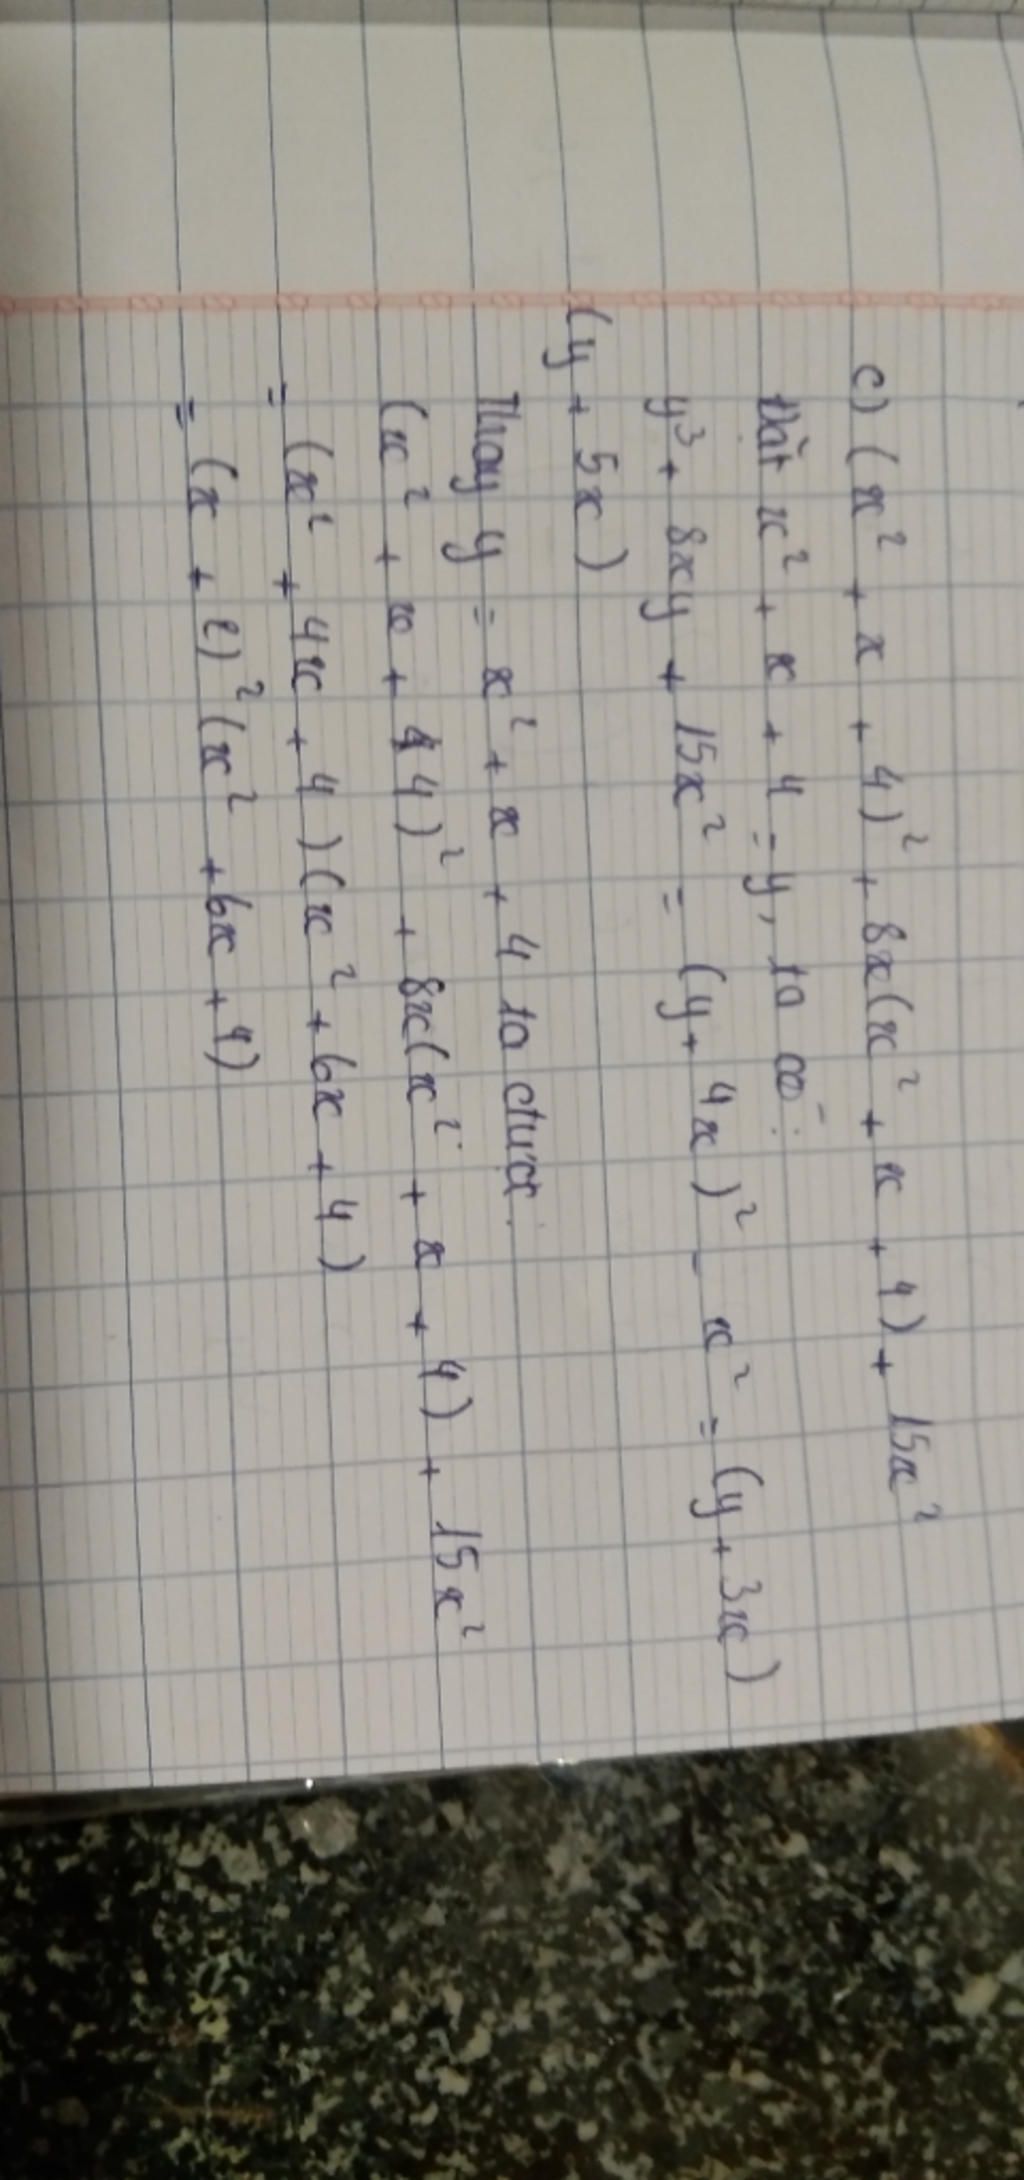 c) (x² + x + 4)² + 8x(x² + x + 4) + 15x²
Đặt x² + x + 4 = y, ta có:
y³ + 8xy + 15x² = (y + 4x)² - x² = (y + 3x)
(y + 5x)
Thay y = x² + x + 4 ta được:
(x² + x + 4)² + 8x(x² + x + 4) + 15x²
= (x² + 4x + 4)(x² + 6x + 4)
= (x + 2)² (x² + 6x + 4)